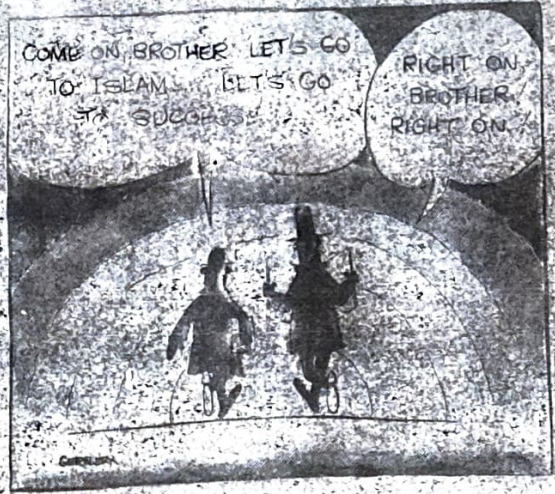 COME ON BROTHER LET'S GO
TO ISLAM... LET'S GO
TO SUCCESS
RIGHT ON
BROTHER,
RIGHT ON!